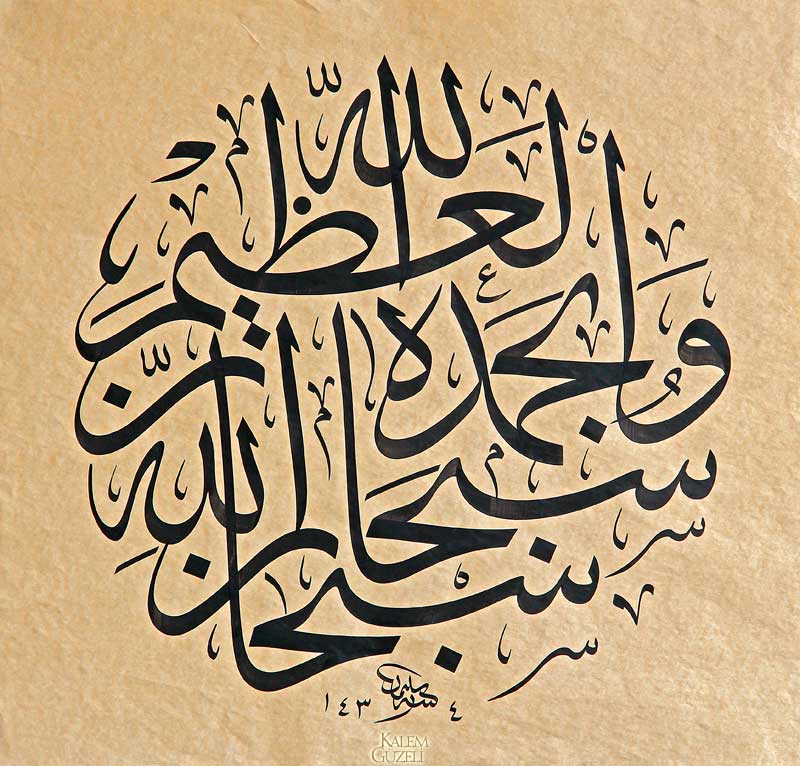 سبحان الله وبحمده
سبحان الله العظيم
١٤٣٤
KALEM
GUZELI